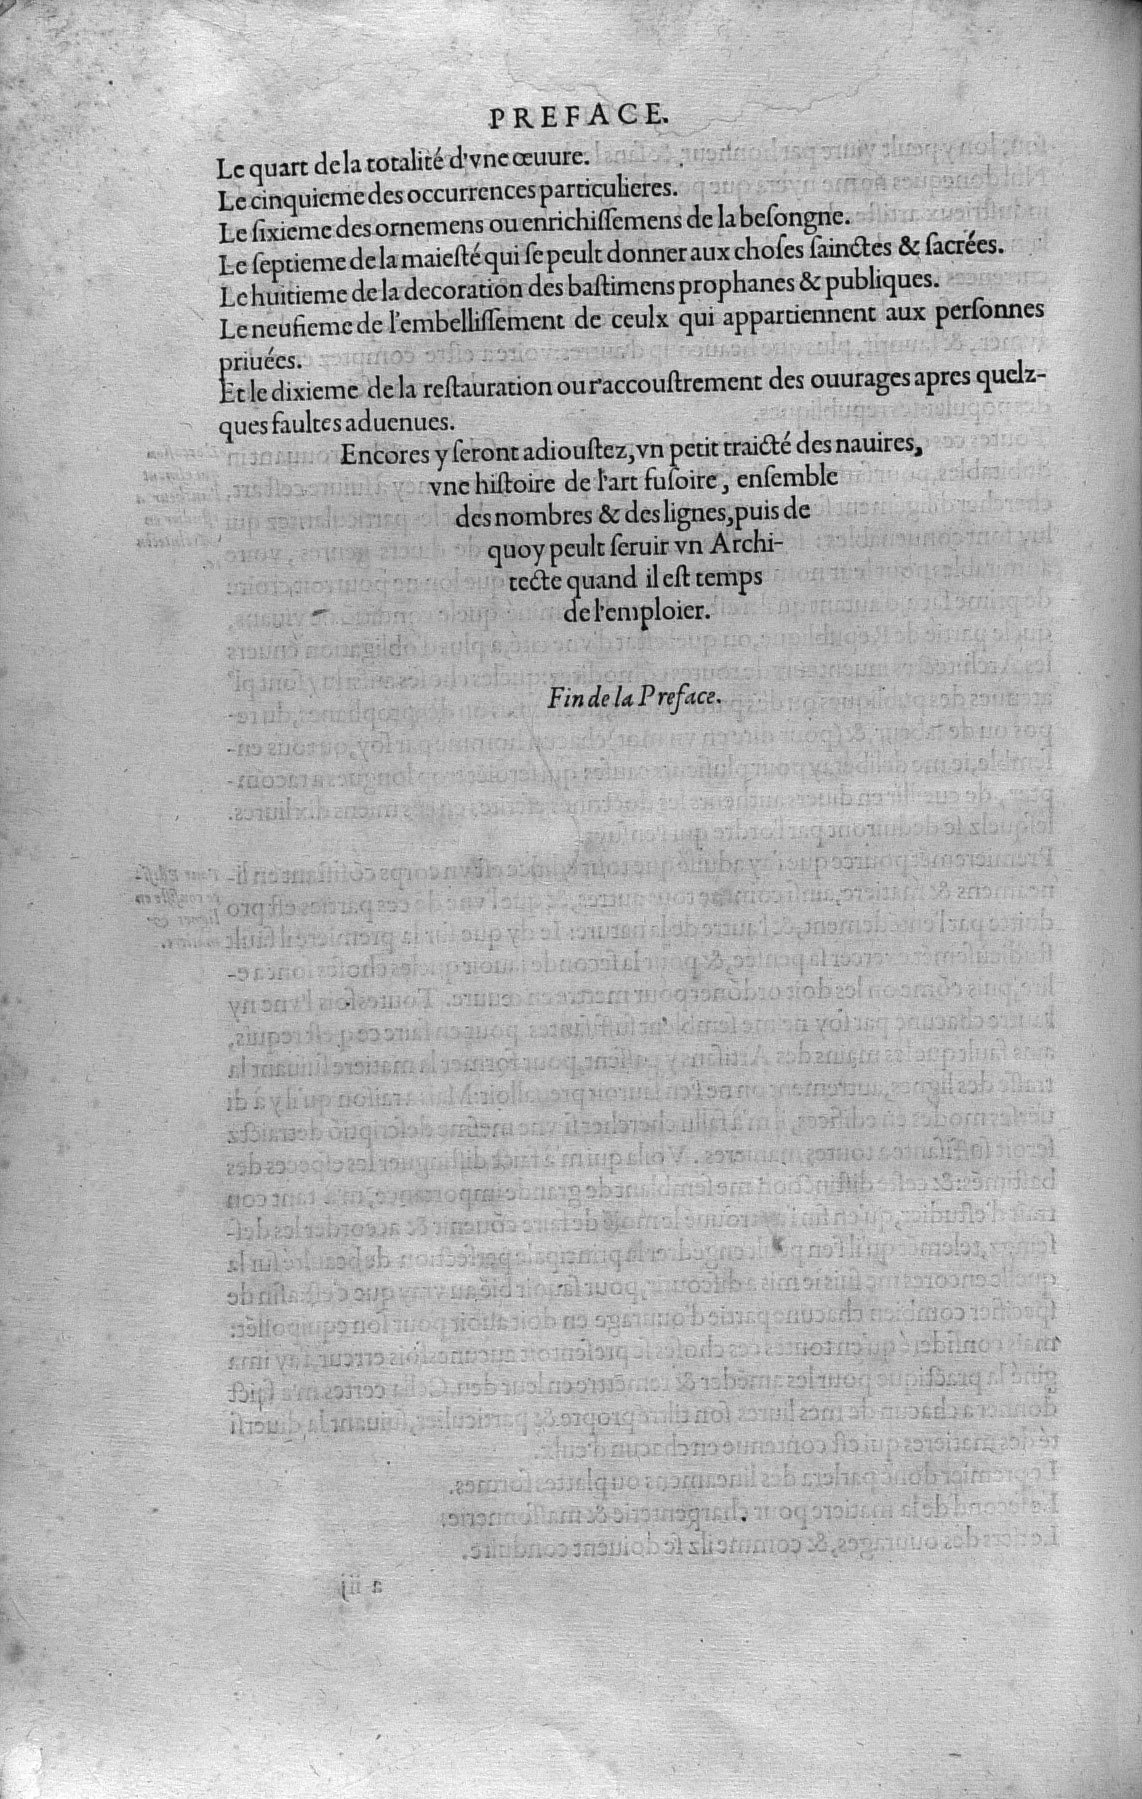 PREFACE.
Le quart de la totalité d'vne œuure.
Le cinquieme des occurrences particulieres.
Le ſixieme des ornemens ou enrichiſſemens de la beſongne.
Le ſeptieme de la maieſté qui ſe peult donner aux choſes ſainctes & ſacrées.
Le huitieme de la decoration des baſtimens prophanes & publiques.
Le neufieme de l'embelliſſement de ceulx qui appartiennent aux perſonnes
priuées.
Et le dixieme de la reſtauration ou r'accouſtrement des ouurages apres quelz-
ques faultes aduenues.
Encores y ſeront adiouſtez, vn petit traicté des nauires,
vne hiſtoire de l'art fuſoire, enſemble
des nombres & des lignes, puis de
quoy peult ſeruir vn Archi-
tecte quand il eſt temps
de l'emploier.
Fin de la Preface.